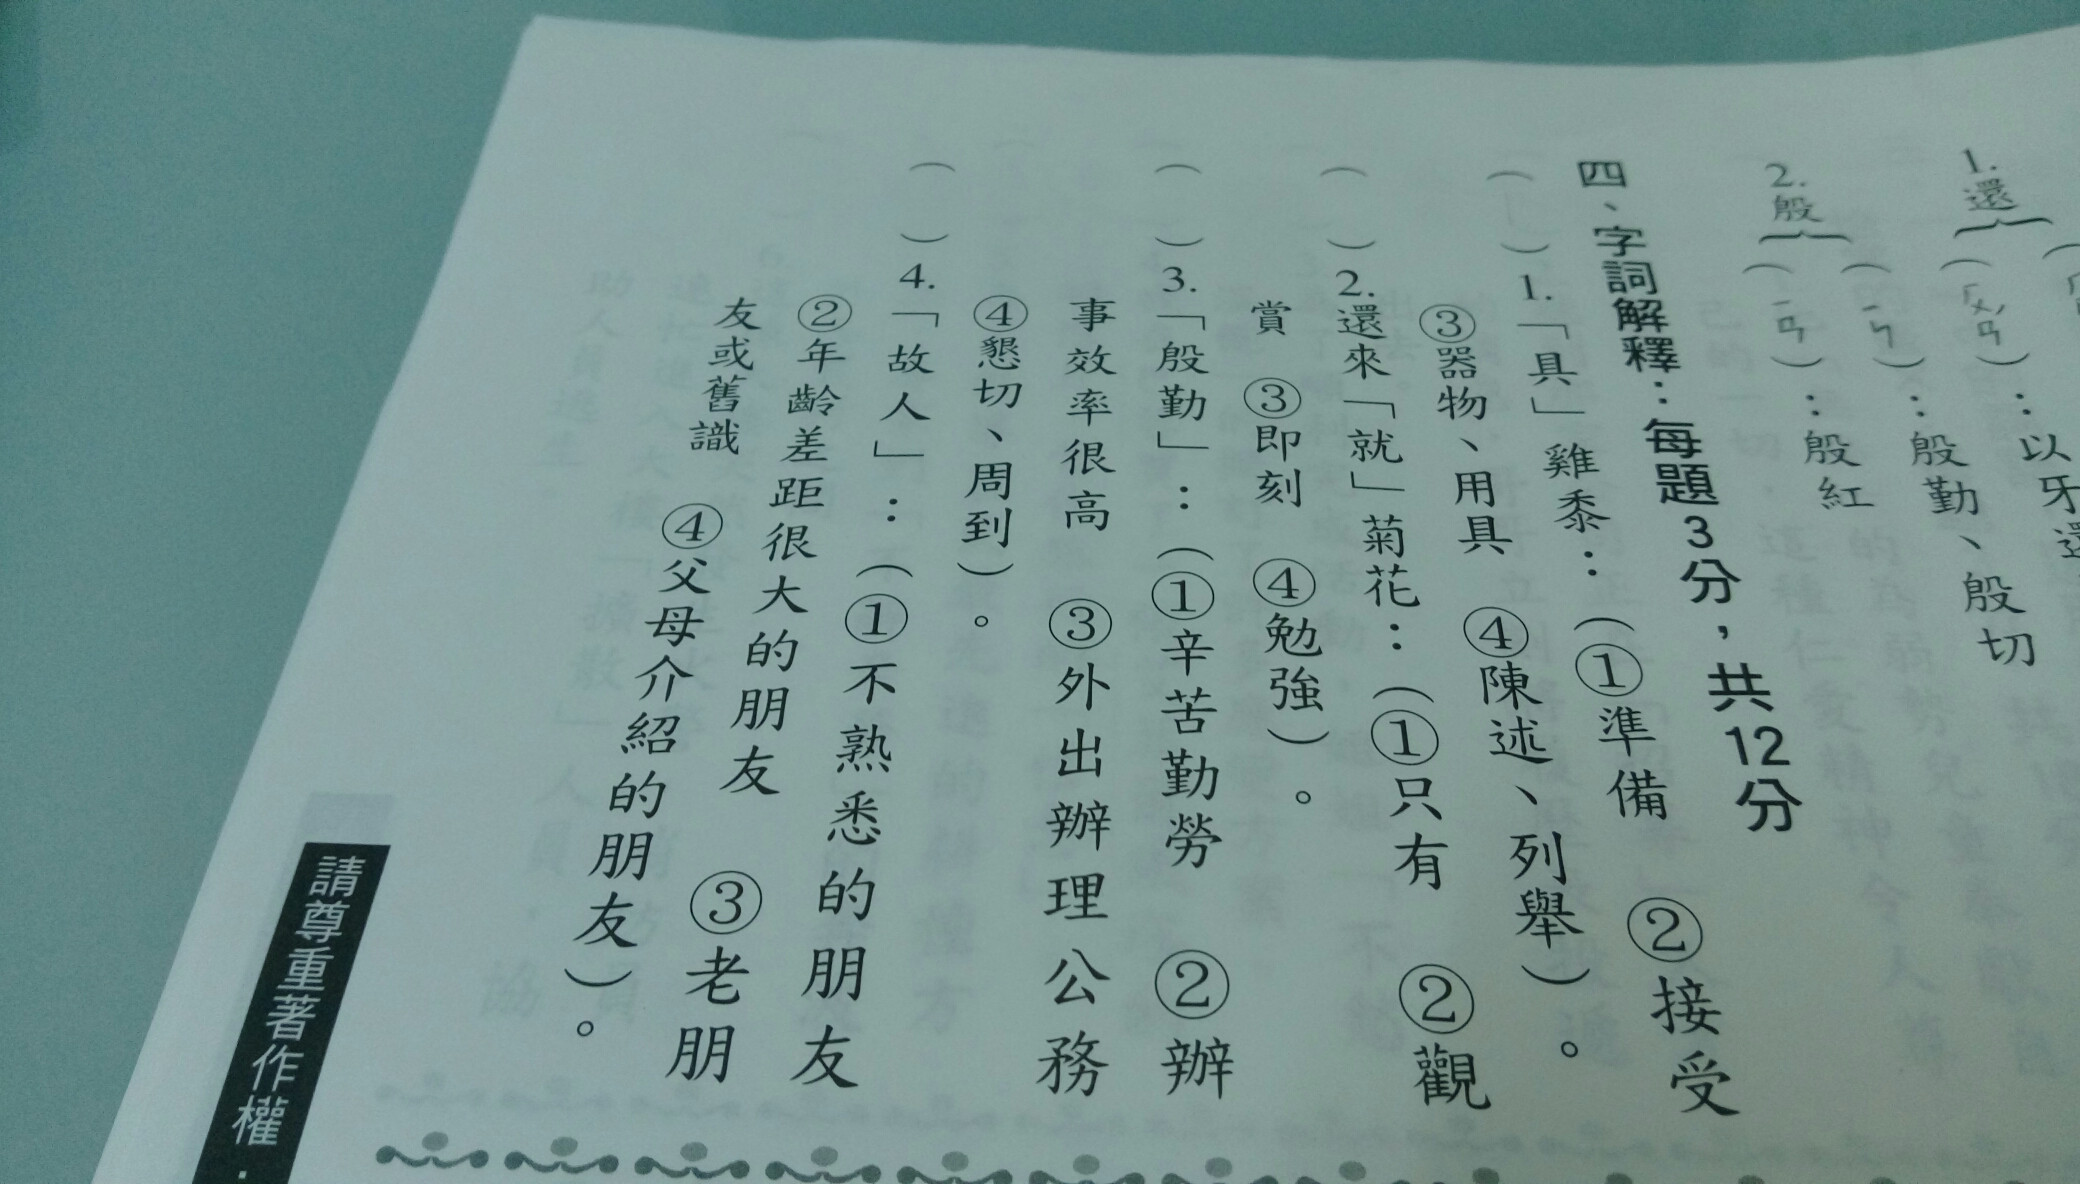 1.還
(ㄏㄨㄢˊ):以牙還
2.殷
(ㄧㄣ):殷勤、殷切
(ㄧㄢ):殷紅
四、字詞解釋:每題3分,共12分
( )1.「具」雞黍:(①準備 ②接受
③器物、用具 ④陳述、列舉)。
( )2.還來「就」菊花:(①只有 ②觀
賞 ③即刻 ④勉強)。
( )3.「殷勤」:(①辛苦勤勞 ②辦
事效率很高 ③外出辦理公務
④懇切、周到)。
( )4.「故人」:(①不熟悉的朋友
②年齡差距很大的朋友 ③老朋
友或舊識 ④父母介紹的朋友)。
請尊重著作權.